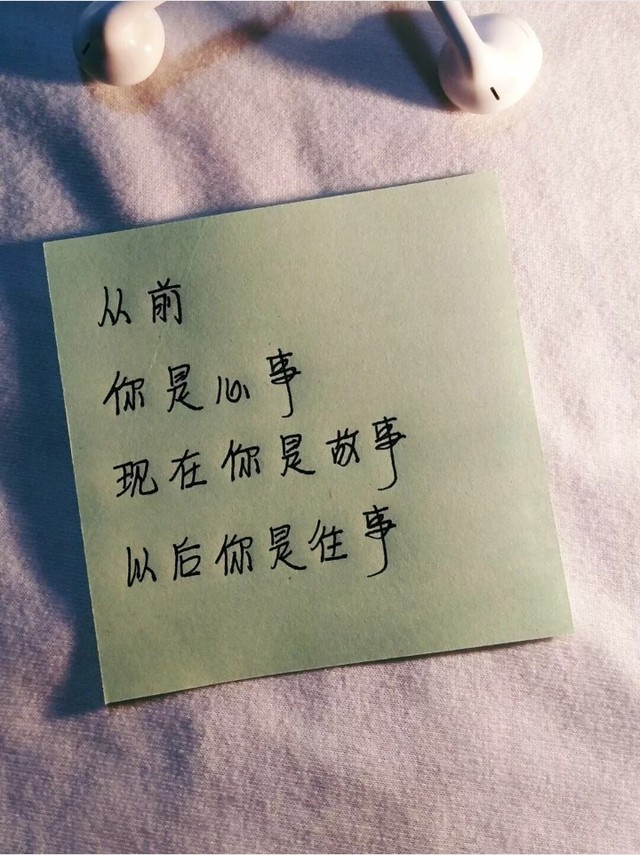 从前
你是心事
现在你是故事
以后你是往事